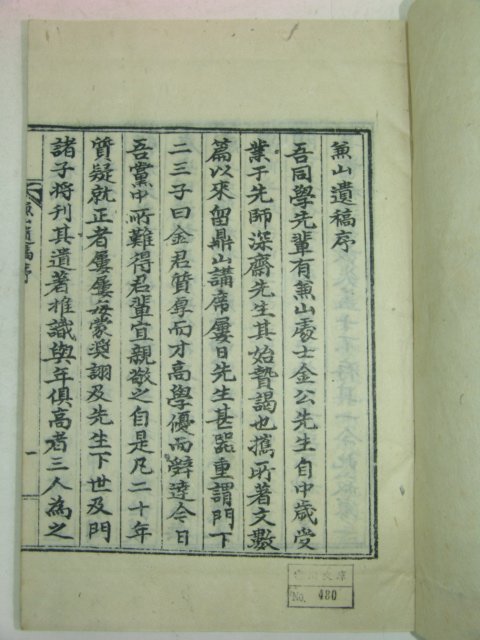 蒹山遺稿序
吾同學先輩有蒹山處士金公先生自中歲受
業于先師深齋先生其始贄謁也攜所著文數
篇以來留鼎山講席屢日先生甚器重謂門下
二三子曰金君質厚而才高學優而辭達今日
吾黨中所難得君輩宜親敬之自是凡二十年
質疑就正者屢屢每蒙奬詡及先生下世及門
諸子將刊其遺著推識與年俱高者三人為之
山遺稿序
一
No. 480